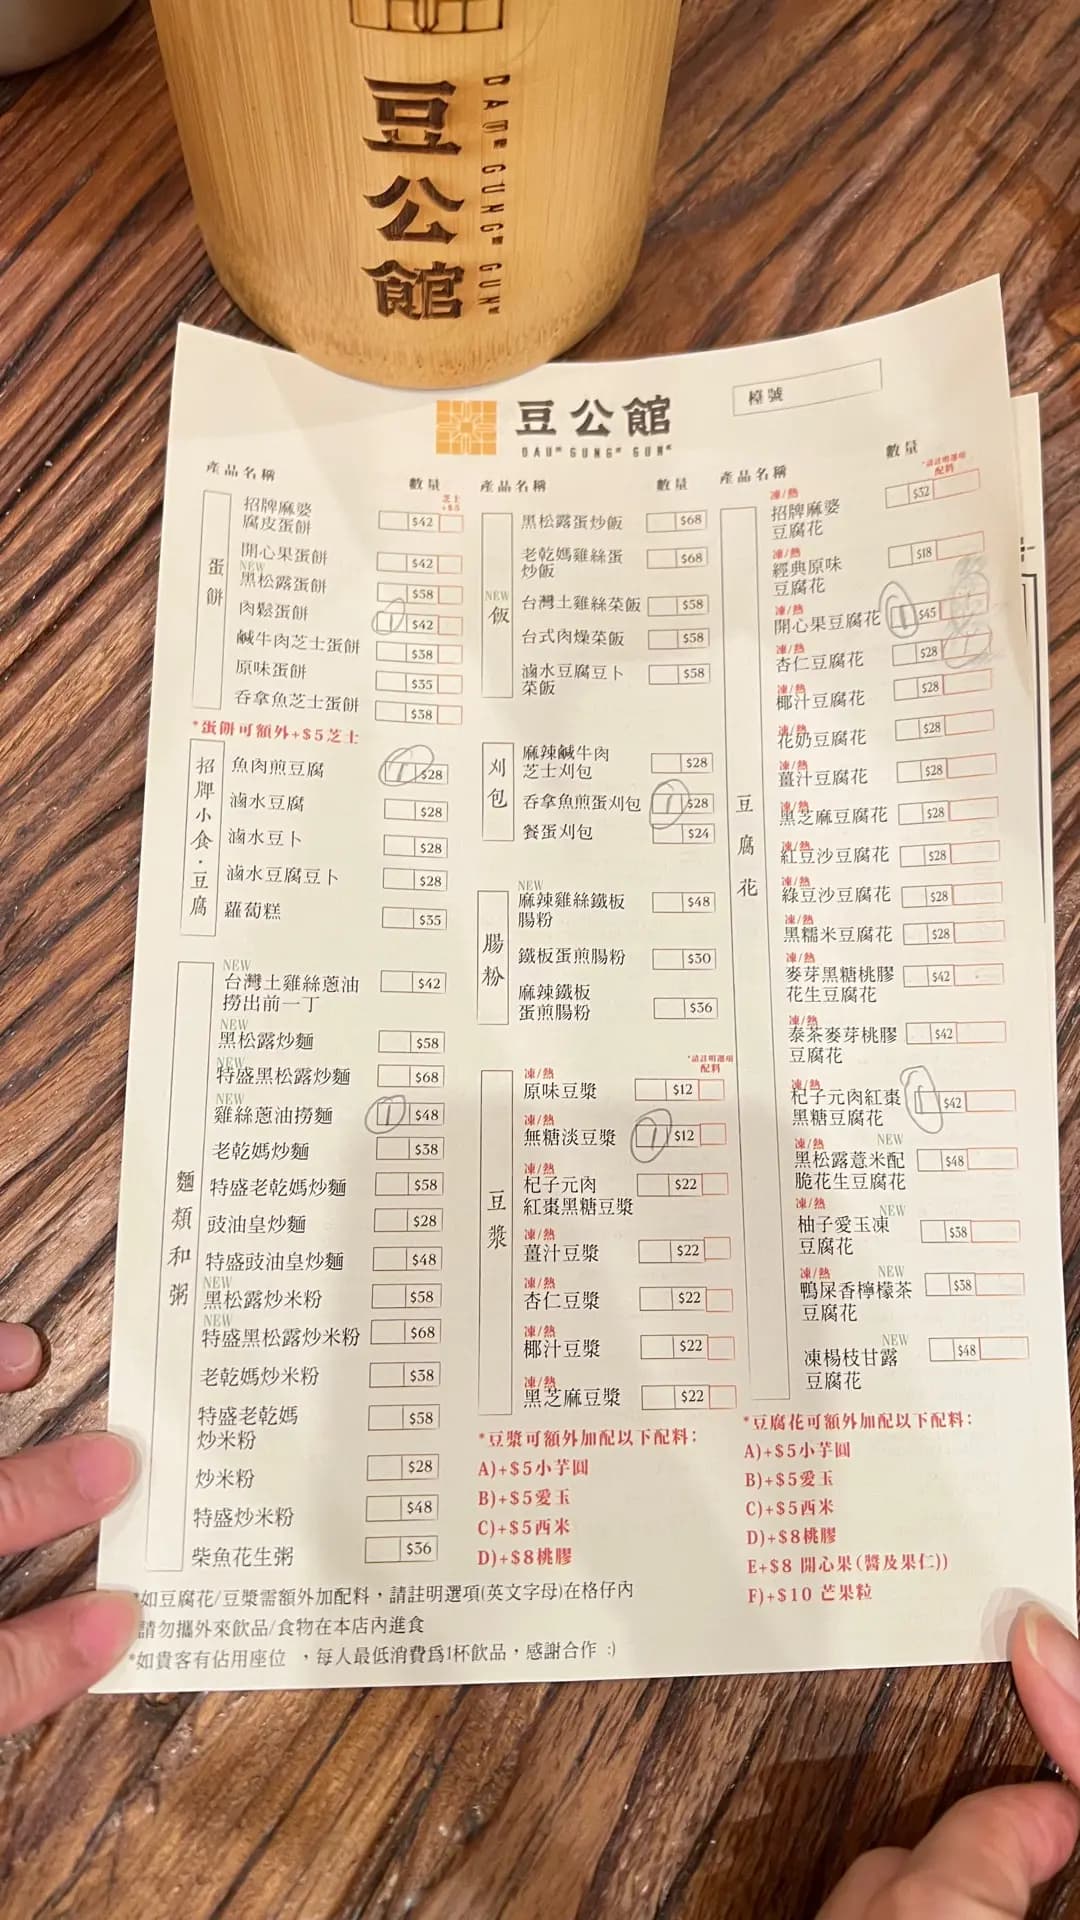 豆公館
DAU GUNG GUN
豆公館
DAU GUNG GUN
檯號
產品名稱 數量
芝士
+$5
蛋餅
招牌麻婆
腐皮蛋餅 $42
開心果蛋餅 $42
NEW
黑松露蛋餅 $58
肉鬆蛋餅 1 $42
鹹牛肉芝士蛋餅 $38
原味蛋餅 $35
吞拿魚芝士蛋餅 $38
*蛋餅可額外+$5芝士
招牌小食·豆腐
魚肉煎豆腐 1 $28
滷水豆腐 $28
滷水豆卜 $28
滷水豆腐豆卜 $28
蘿蔔糕 $35
麵類和粥
NEW
台灣土雞絲蔥油
撈出前一丁 $42
NEW
黑松露炒麵 $58
NEW
特盛黑松露炒麵 $68
NEW
雞絲蔥油撈麵 1 $48
老乾媽炒麵 $38
特盛老乾媽炒麵 $58
豉油皇炒麵 $28
特盛豉油皇炒麵 $48
NEW
黑松露炒米粉 $58
NEW
特盛黑松露炒米粉 $68
老乾媽炒米粉 $38
特盛老乾媽
炒米粉 $58
炒米粉 $28
特盛炒米粉 $48
柴魚花生粥 $36
產品名稱 數量
NEW
飯
黑松露蛋炒飯 $68
老乾媽雞絲蛋
炒飯 $68
台灣土雞絲菜飯 $58
台式肉燥菜飯 $58
滷水豆腐豆卜
菜飯 $58
刈包
麻辣鹹牛肉
芝士刈包 $28
吞拿魚煎蛋刈包 1 $28
餐蛋刈包 $24
腸粉
NEW
麻辣雞絲鐵板
腸粉 $48
鐵板蛋煎腸粉 $30
麻辣鐵板
蛋煎腸粉 $36
*請註明選項
配料
豆漿
凍/熱
原味豆漿 $12
凍/熱
無糖淡豆漿 1 $12
凍/熱
杞子元肉
紅棗黑糖豆漿 $22
凍/熱
薑汁豆漿 $22
凍/熱
杏仁豆漿 $22
凍/熱
椰汁豆漿 $22
凍/熱
黑芝麻豆漿 $22
*豆漿可額外加配以下配料:
A)+$5小芋圓
B)+$5愛玉
C)+$5西米
D)+$8桃膠
產品名稱 數量
*請註明選項
配料
豆腐花
凍/熱
招牌麻婆
豆腐花 $32
凍/熱
經典原味
豆腐花 $18
凍/熱
開心果豆腐花 1 $45
凍/熱
杏仁豆腐花 $28
凍/熱
椰汁豆腐花 $28
凍/熱
花奶豆腐花 $28
凍/熱
薑汁豆腐花 $28
凍/熱
黑芝麻豆腐花 $28
凍/熱
紅豆沙豆腐花 $28
凍/熱
綠豆沙豆腐花 $28
凍/熱
黑糯米豆腐花 $28
凍/熱
麥芽黑糖桃膠
花生豆腐花 $42
凍/熱
泰茶麥芽桃膠
豆腐花 $42
凍/熱
杞子元肉紅棗
黑糖豆腐花 1 $42
凍/熱 NEW
黑松露薏米配
脆花生豆腐花 $48
凍/熱 NEW
柚子愛玉凍
豆腐花 $38
凍/熱 NEW
鴨屎香檸檬茶
豆腐花 $38
NEW
凍楊枝甘露
豆腐花 $48
*豆腐花可額外加配以下配料:
A)+$5小芋圓
B)+$5愛玉
C)+$5西米
D)+$8桃膠
E+$8 開心果(醬及果仁))
F)+$10 芒果粒
*如豆腐花/豆漿需額外加配料，請註明選項(英文字母)在格仔內
請勿攜外來飲品/食物在本店內進食
*如貴客有佔用座位 ，每人最低消費爲1杯飲品，感謝合作 :)